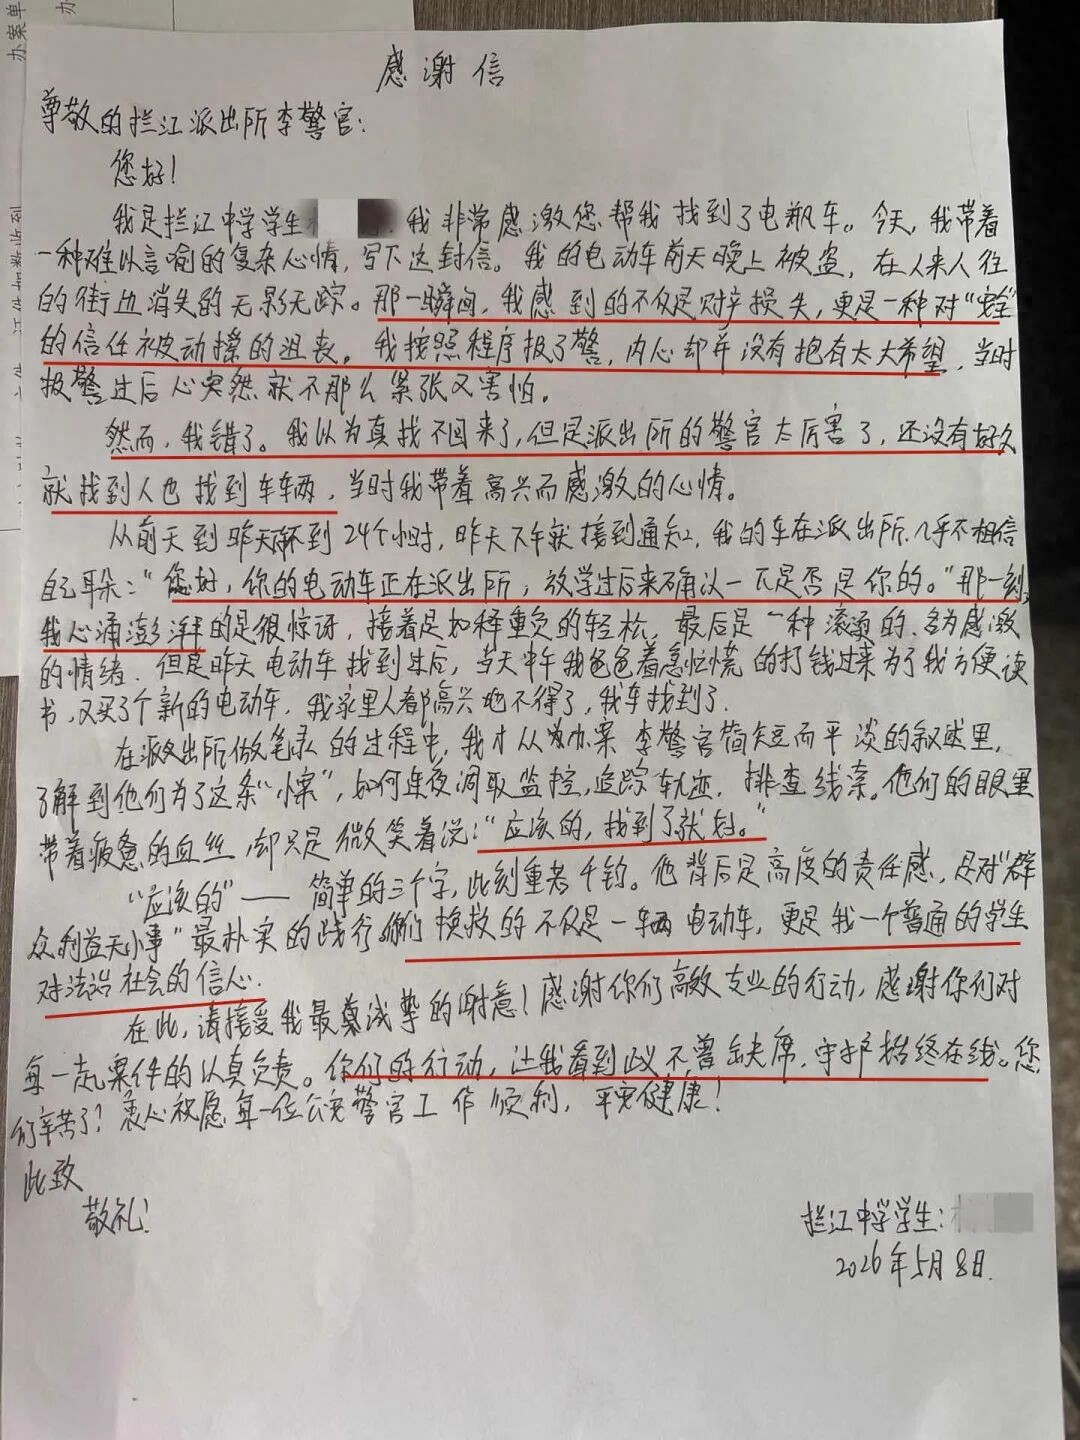 办案单
感谢信
尊敬的拦江派出所李警官：
您好！
我是拦江中学学生 我非常感激您帮我找到了电瓶车。今天，我带着
一种难以言喻的复杂心情，写下这封信。我的电动车前天晚上被盗，在人来人往
的街边消失的无影无踪。那一瞬间，我感到的不仅是财产损失，更是一种对“安全”
的信任被动摇的沮丧。我按照程序报了警，内心却并没有抱有太大希望，当时
报警过后心突然就不那么紧张又害怕。
然而，我错了。我以为真找不回来了，但是派出所的警官太厉害了，还没有好久
就找到人也找到车辆，当时我带着高兴而感激的心情。
从前天到昨天不到24个小时，昨天下午就接到通知，我的车在派出所，几乎不相信
自己耳朵：“您好，你的电动车正在派出所，放学过后来确认一下是否是你的。”那一刻，
我心涌澎湃的是很惊讶，接着是如释重负的轻松，最后是一种滚烫的、名为感激
的情绪．但是昨天电动车找到过后，当天中午我爸爸着急忙慌的打钱过来为了我方便读
书，又买了个新的电动车．我家里人都高兴地不得了，我车找到了．
在派出所做笔录的过程中，我才从办案李警官简短而平淡的叙述里，
了解到他们为了这条“小案”，如何连夜调取监控，追踪轨迹，排查线索。他们的眼里
带着疲惫的血丝，却只是微笑着说：“应该的，找到了就好。”
“应该的”——简单的三个字，此刻重若千钧。他背后是高度的责任感，是对“群
众利益无小事”最朴实的践行。你们挽救的不仅是一辆电动车，更是我一个普通的学生
对法治社会的信心．
在此，请接受我最真诚挚的谢意！感谢你们高效专业的行动，感谢你们对
每一起案件的认真负责。你们的行动，让我看到正义不曾缺席，守护始终在线。您
们辛苦了！衷心祝愿每一位公安警官工作顺利，平安健康！
此致
敬礼！
拦江中学学生：
2026年5月8日．